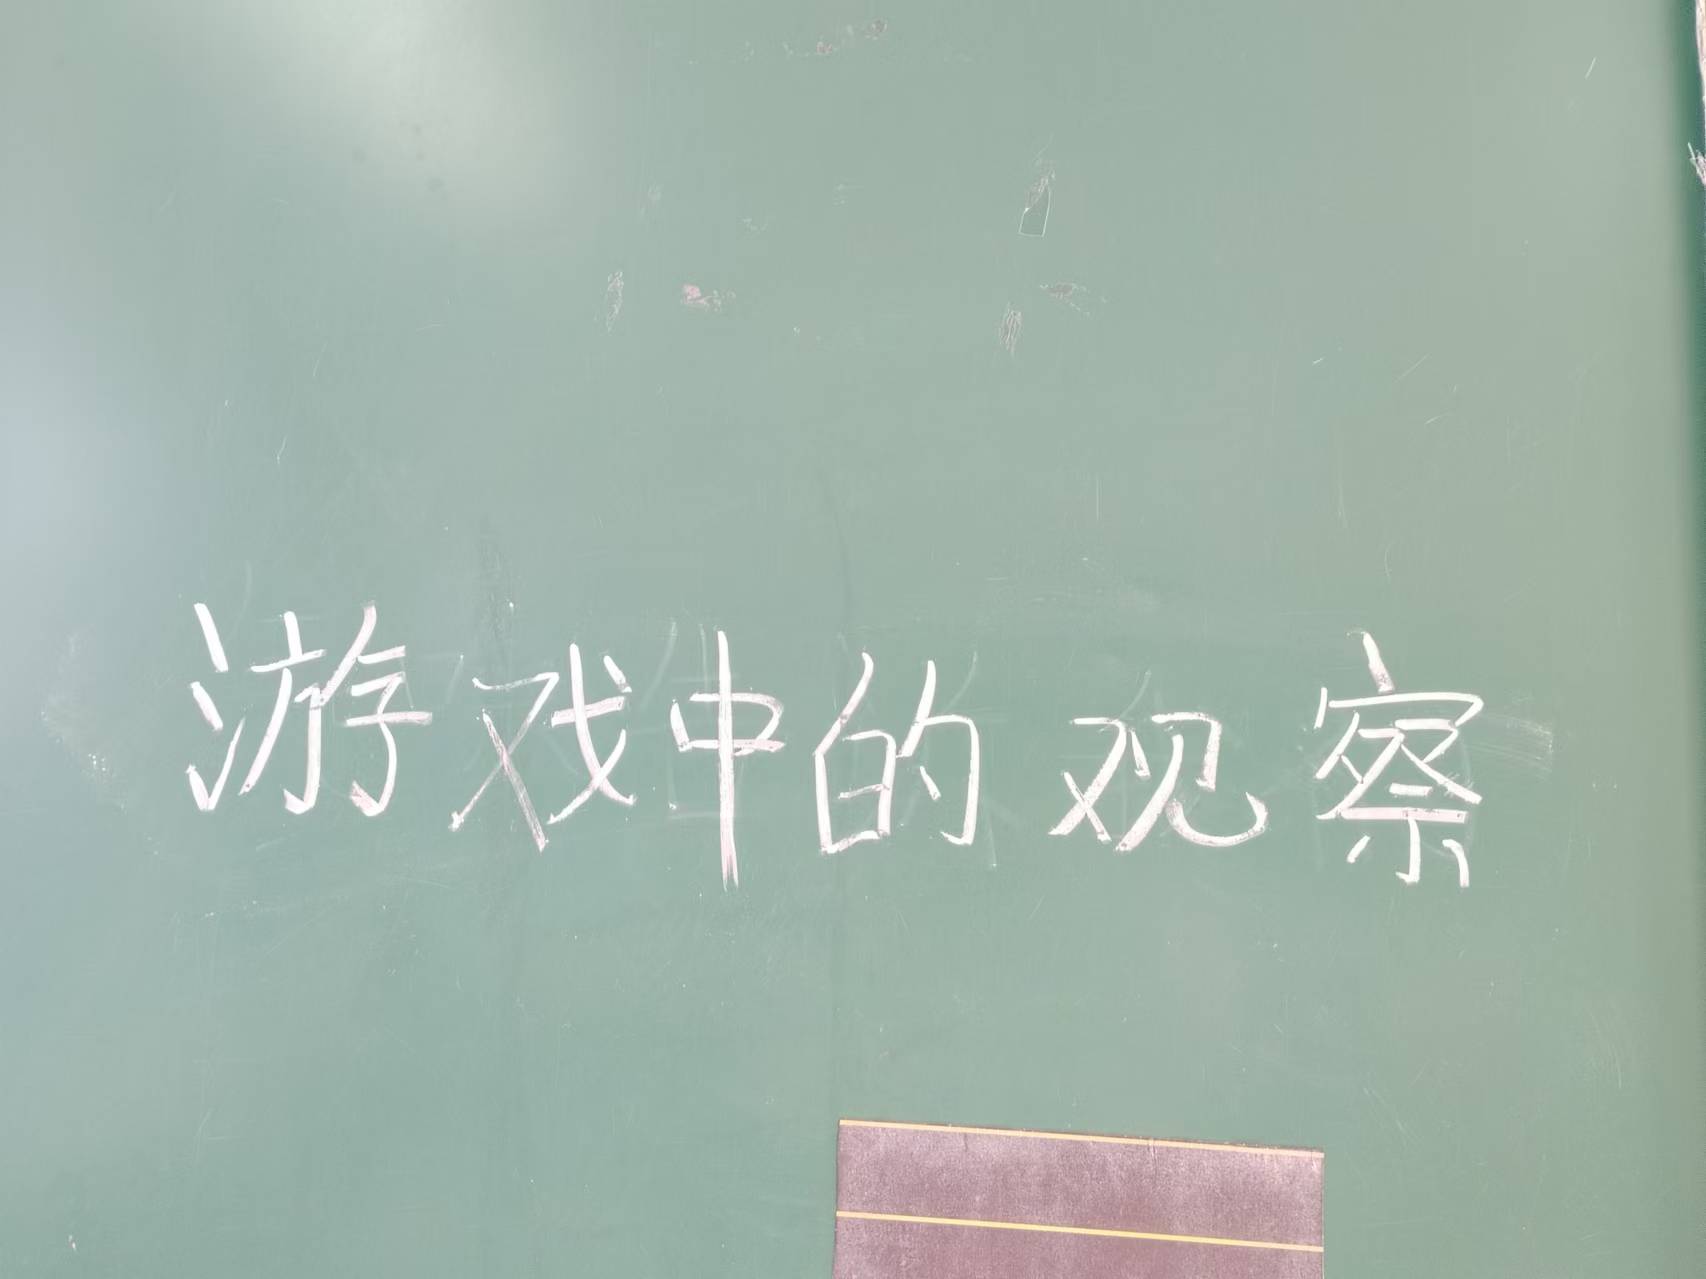 游戏中的观察